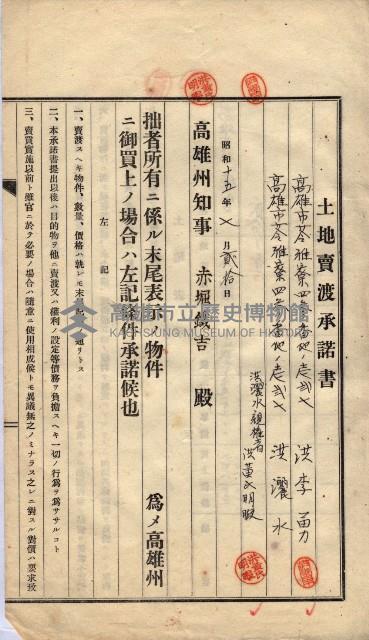 土地賣渡承諾書
高雄市苓雅寮四六番地ノ壱弐七
洪李勇
高雄市苓雅寮四六番地ノ壱弐七
洪灑水
洪灑水親權者
洪黃氏明暇
昭和十五年七月貳拾日
高雄州知事 赤堀鐵吉 殿
拙者所有ニ係ル末尾表示ノ物件 為メ高雄州
ニ御買上ノ場合ハ左記條件承諾候也
左記
一、賣渡スヘキ物件、數量、價格ハ就レモ末尾記載ノ通リトス
二、本承諾書提出以後ハ目的物ヲ他ニ賣渡又ハ權利ノ設定等債務ヲ負擔スヘキ一切ノ行為ヲ為ササルコト
三、賣買實施以前ト雖官ニ於テ必要ノ場合ハ隨意ニ使用相成候トモ異議無之ノミナラス之レニ對スル對價ハ要求致
高雄市立歷史博物館
KAOHSIUNG MUSEUM OF HISTORY